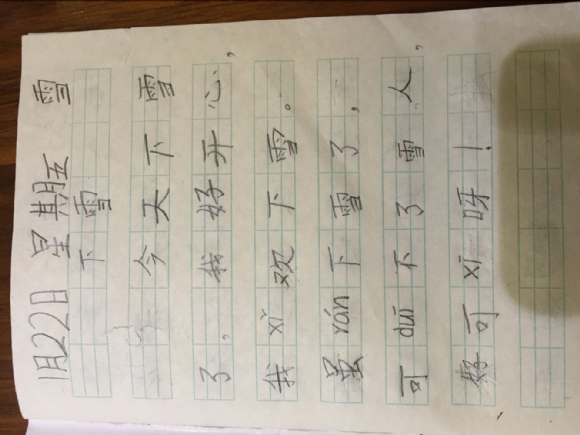 1月22日 星期五 雪
下雪
今天下雪
了，我好开心，
我xǐ欢下雪。
虽rán下雪了，
可duī不了雪人，
好可xī呀！